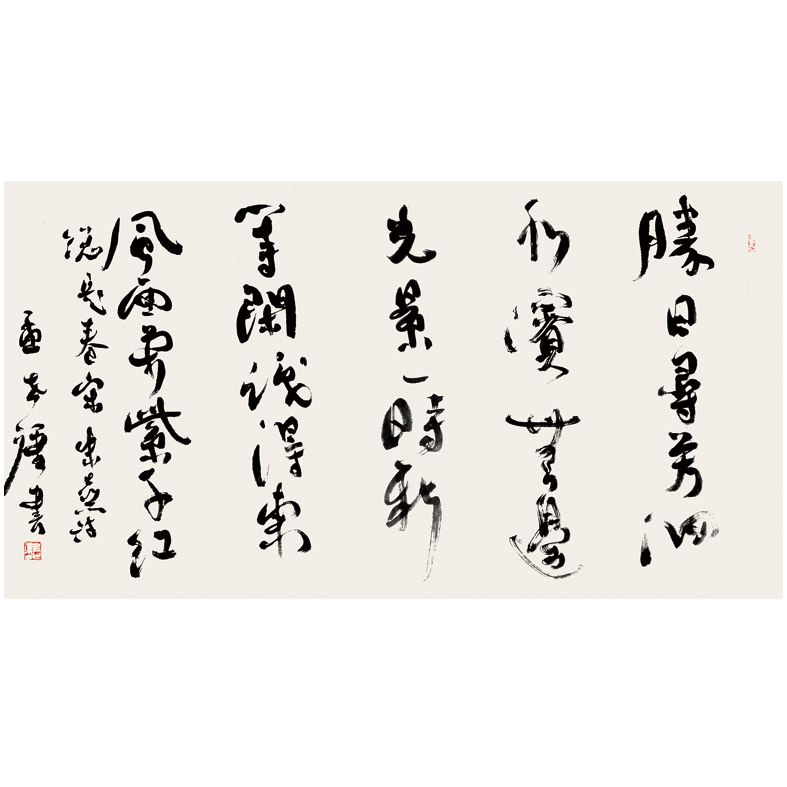 勝日尋芳泗
水濱無邊
光景一時新
等閑識得東
風面萬紫千紅
總是春宋朱熹詩
書